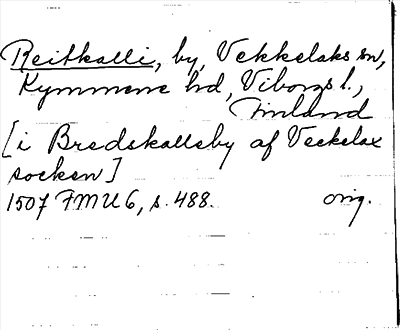 Reitkalli, by, Vekkelaks sn,
Kymmene hd, Viborgs l.,
Finland
[i Bredskallsby af Veckelax
socken]
1507 FMU 6, s. 488. orig.